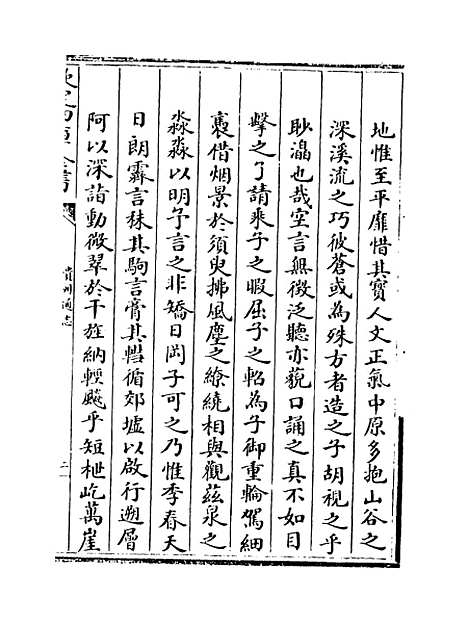 地惟至平靡惜其寶人文正氣中原多抱山谷之
深溪流之巧彼蒼或為殊方者造之子胡視之乎
眇潝也哉空言無徵泛聽亦藐口誦之真不如目
擊之了請乘子之暇屈子之軺為子御重輪駕細
褭借烟景於須臾拂風塵之繚繞相與觀茲泉之
淼淼以明予言之非矯日岡子可之乃惟季春天
日朗霽言秣其駒言膏其轊循郊墟以啟行遡層
阿以深詣動微翠於干旌納輕颸乎短枻屹萬崖
欽定四庫全書
貴州通志
二